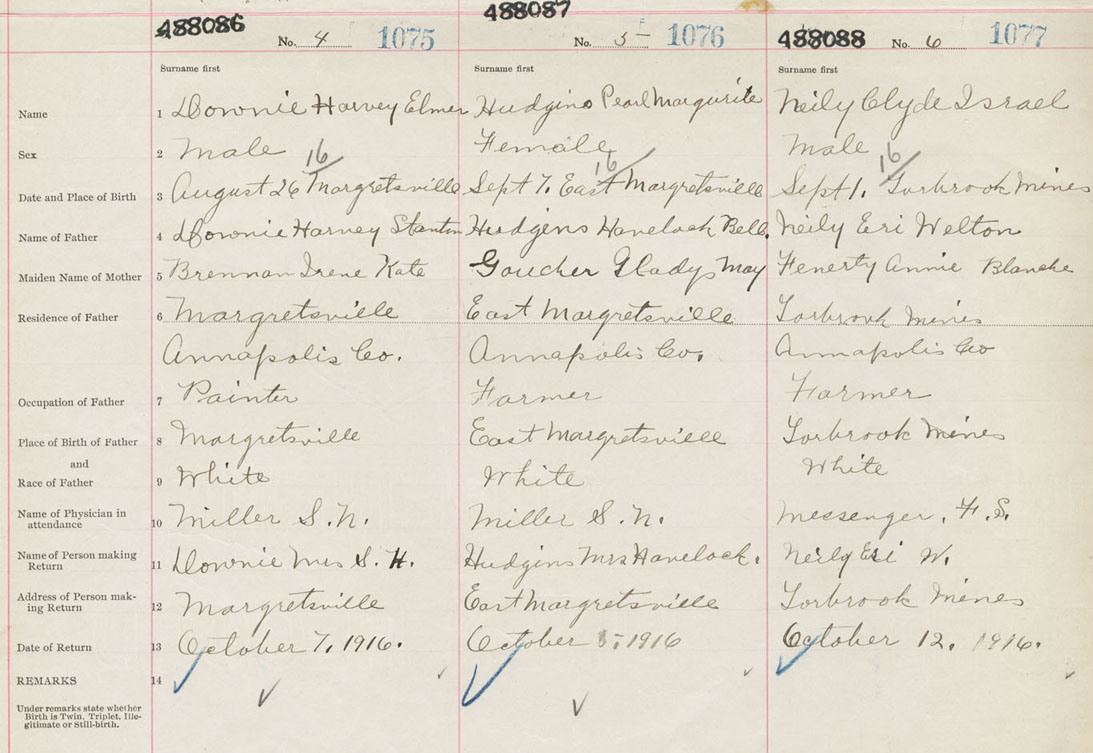 488086 488087 488088
No. 4 1075 No. 5 1076 No. 6 1077
Surname first Surname first Surname first
Name 1 Downie Harvey Elmer Hudgins Pearl Margurite Neily Clyde Israel
Sex 2 Male Female Male
16 16 16
Date and Place of Birth 3 August 26 Margretsville Sept 7. East Margretsville Sept 1. Torbrook Mines
Name of Father 4 Downie Harvey Stanton Hudgins Havelock Bell. Neily Eri Welton
Maiden Name of Mother 5 Brennan Irene Kate Goucher Gladys May Fenerty Annie Blanche
Residence of Father 6 Margretsville East Margretsville Torbrook Mines
Annapolis Co. Annapolis Co. Annapolis Co
Occupation of Father 7 Painter Farmer Farmer
Place of Birth of Father 8 Margretsville East Margretsville Torbrook Mines
and
Race of Father 9 White White White
Name of Physician in
attendance 10 Miller S. N. Miller S. N. Messenger. F. S.
Name of Person making
Return 11 Downie Mrs S. H. Hudgins Mrs Havelock. Neily Eri W.
Address of Person mak-
ing Return 12 Margretsville East Margretsville Torbrook Mines
Date of Return 13 October 7, 1916. October 5, 1916 October 12. 1916.
REMARKS 14
Under remarks state whether
Birth is Twin, Triplet, Ille-
gitimate or Still-birth.